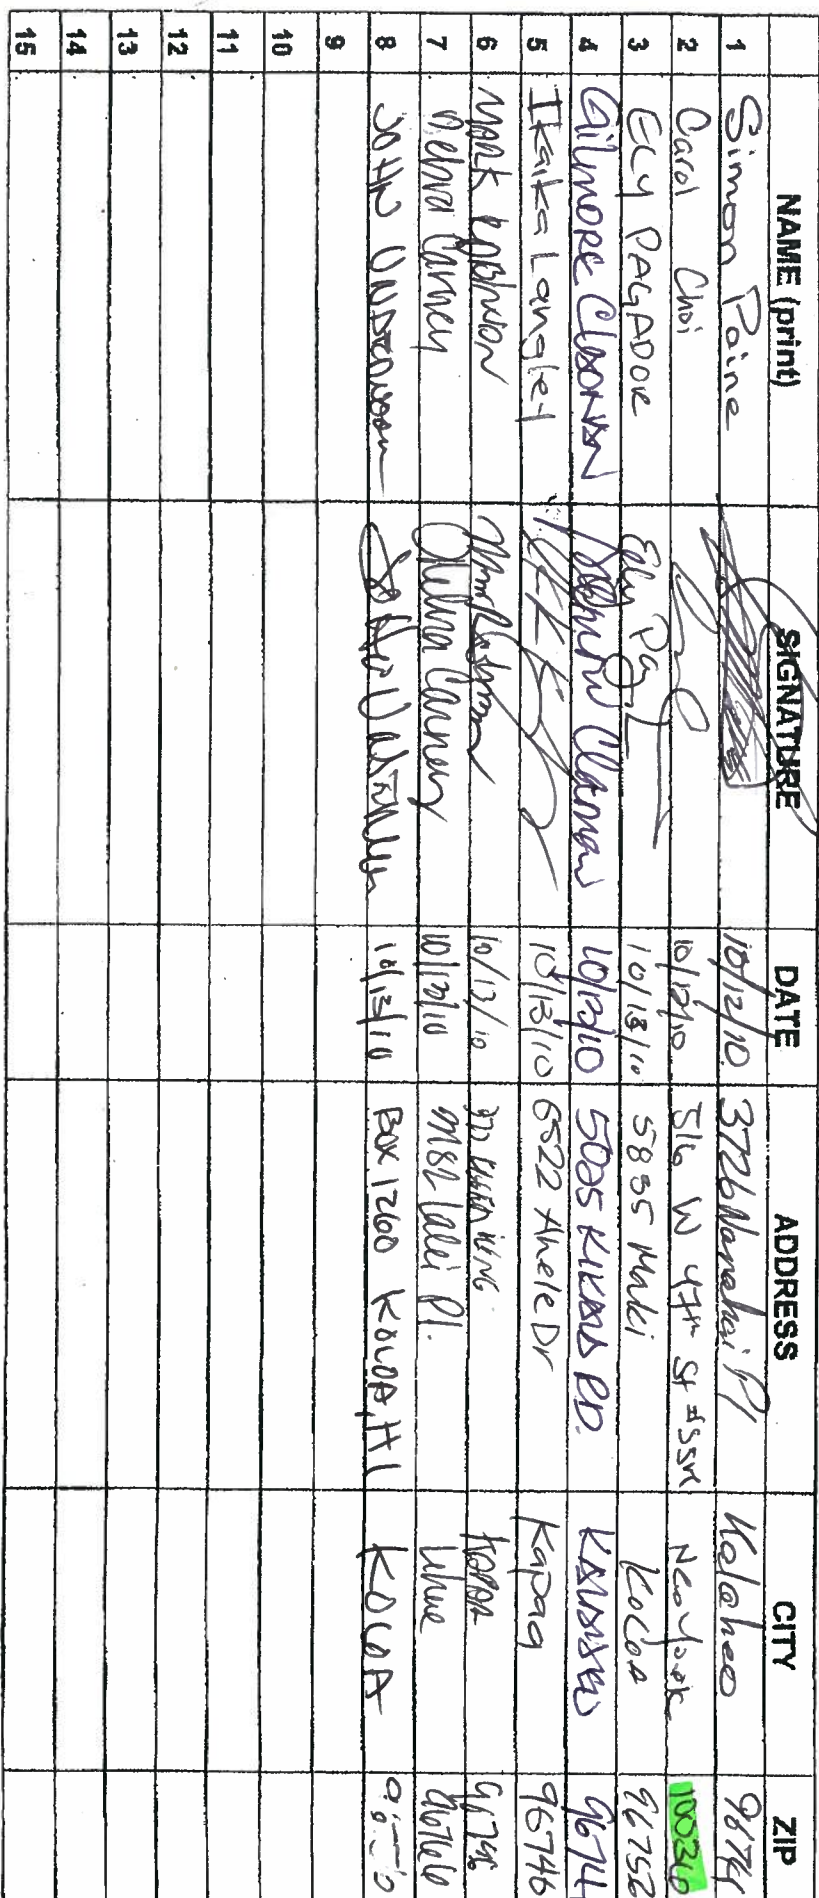 NAME (print) SIGNATURE DATE ADDRESS CITY ZIP
1 Simon Paine 10/12/10 3726 Nanahai Pl Kalaheo 96741
2 Carol Choi 10/12/10 516 W 47th St New York
3 ELY PAGADOR Ely 10/13/10 5835 Maki KOLOA 96756
4 Gilmore 10/13/10 5025 RD. 9674
5 Ikaika Langley 10/13/10 6522 Ahele Dr Kapaa 96746
6 MARK 10/13/10 96746
7 Debra Carney Debra Carney 10/13/10 Lalei Pl. Lihue 96766
8 JOHN UNDERWOOD 10/13/10 BOX 1260 KOLOA, HI KOLOA
9
10
11
12
13
14
15